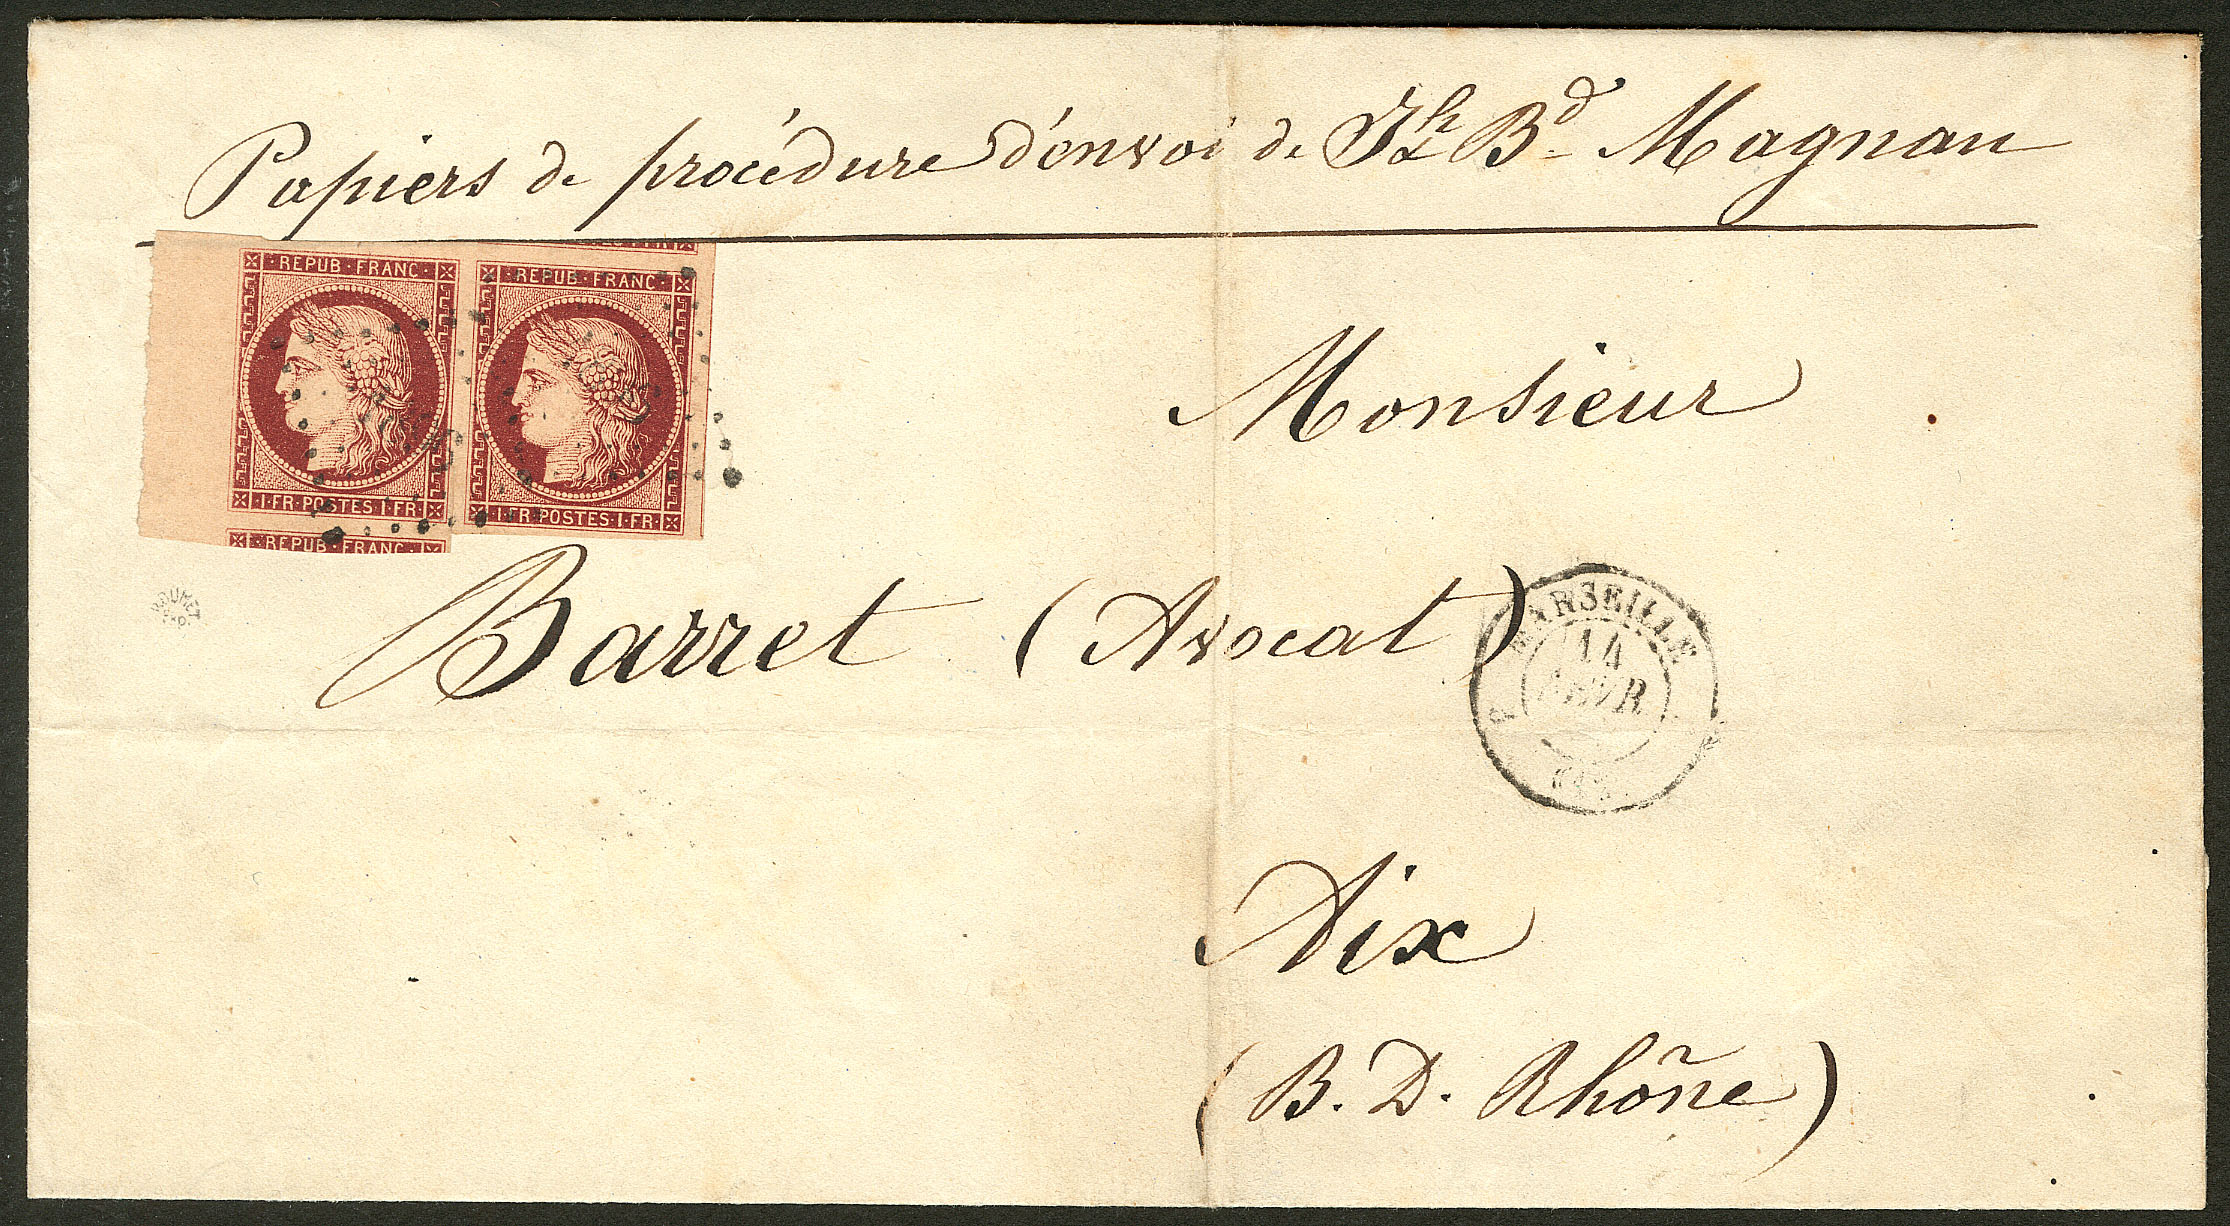 Papiers de procédure d'envoi de Jh Bd Magnan
REPUB · FRANC ·
REPUB · FRANC ·
1 · FR · POSTES · 1 · FR ·
1 · FR · POSTES · 1 · FR ·
REPUB · FRANC ·
Monsieur
Barret (Avocat)
MARSEILLE
14
Aix
(B. D. Rhône)